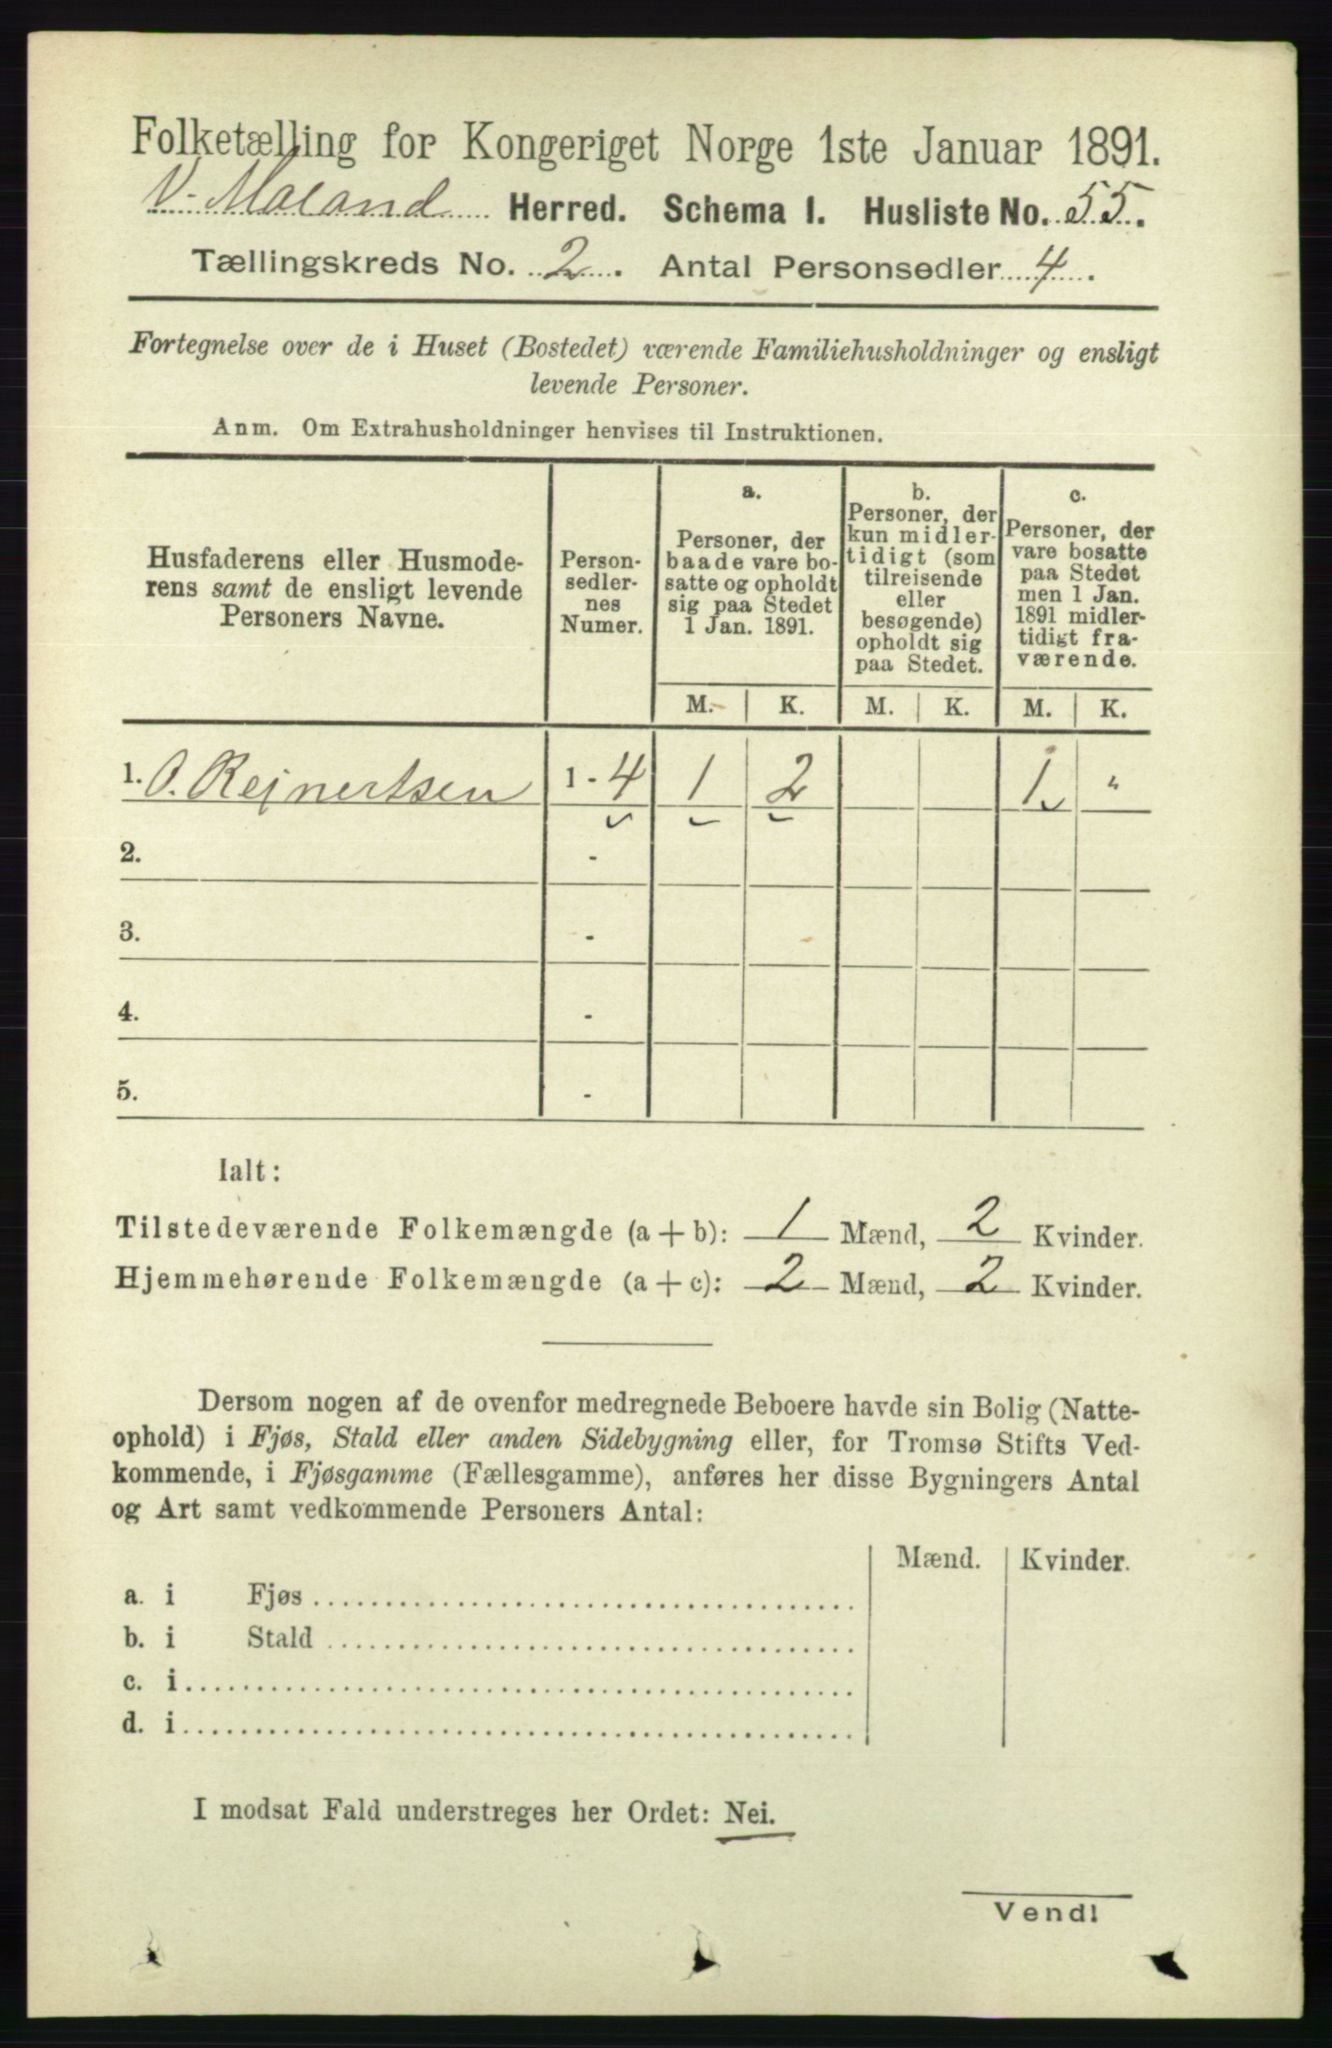 Folketælling for Kongeriget Norge 1ste Januar 1891.
V. Moland Herred. Schema I. Husliste No. 55.
Tællingskreds No. 2. Antal Personsedler 4.
Fortegnelse over de i Huset (Bostedet) værende Familiehusholdninger og ensligt
levende Personer.
Anm. Om Extrahusholdninger henvises til Instruktionen.
Husfaderens eller Husmode-
rens samt de ensligt levende
Personers Navne.
Person-
sedler-
nes
Numer.
a.
Personer, der
baade vare bo-
satte og opholdt
sig paa Stedet
1 Jan. 1891.
b.
Personer, der
kun midler-
tidigt (som
tilreisende
eller
besøgende)
opholdt sig
paa Stedet.
c.
Personer, der
vare bosatte
paa Stedet
men 1 Jan.
1891 midler-
tidigt fra-
værende.
M. K. M. K. M. K.
1. O. Rejnertsen 1 - 4 1 2 1 "
2. -
3. -
4. -
5. -
Ialt:
Tilstedeværende Folkemængde (a + b): 1 Mænd, 2 Kvinder.
Hjemmehørende Folkemængde (a + c): 2 Mænd, 2 Kvinder.
Dersom nogen af de ovenfor medregnede Beboere havde sin Bolig (Natte-
ophold) i Fjøs, Stald eller anden Sidebygning eller, for Tromsø Stifts Ved-
kommende, i Fjøsgamme (Fællesgamme), anføres her disse Bygningers Antal
og Art samt vedkommende Personers Antal:
Mænd. Kvinder.
a. i Fjøs
b. i Stald
c. i
d. i
I modsat Fald understreges her Ordet: Nei.
Vend!